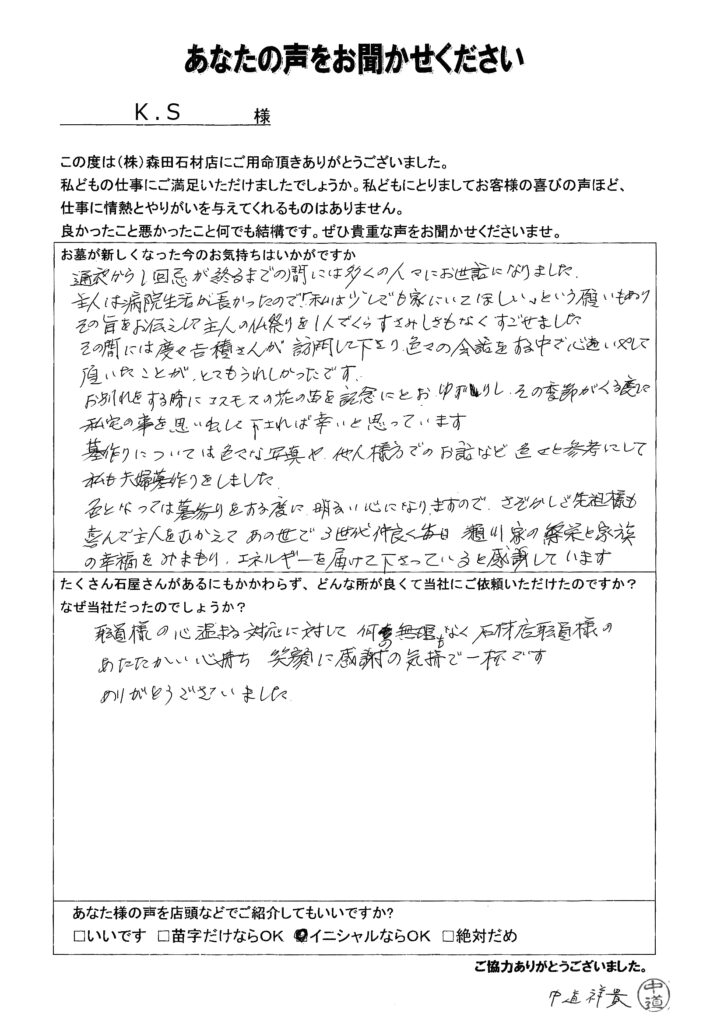 あなたの声をお聞かせください
K.S 様
この度は(株)森田石材店にご用命頂きありがとうございました。
私どもの仕事にご満足いただけましたでしょうか。私どもにとりましてお客様の喜びの声ほど、
仕事に情熱とやりがいを与えてくれるものはありません。
良かったこと悪かったこと何でも結構です。ぜひ貴重な声をお聞かせくださいませ。
お墓が新しくなった今のお気持ちはいかがですか
通夜から1回忌が終るまでの間には多くの人々にお世話になりました.
主人は病院生活が長かったので「私は少しでも家にいてほしい」という願いもあり
その旨をお伝えして主人の仏祭りを1人でくらすさみしさもなくすごせました
その間には度々 さんが訪問して下さり.色々の会話をする中で心遣い
頂いたことが.とてもうれしかったです.
お別れをする時にコスモスの花の苗を記念にとおゆずりし.その季節がくる度に
私宅の事を思い出して下されば幸いと思っています
墓作りについては色々な写真や.他人様方でのお話など色々と参考にして
私も夫婦墓作りをしました.
となっては墓参りをする度に.明るい心になりますので.さぞかしご先祖様も
喜んで主人をむかえてあの世で3世代仲良く毎日 家の繁栄と家族
の幸福をみまもり.エネルギーを届けて下さっていると感謝しています
たくさん石屋さんがあるにもかかわらず、どんな所が良くて当社にご依頼いただけたのですか?
なぜ当社だったのでしょうか?
様の心温まる対応に対して何の無理もなく石材店 様の
あたたかい心持ち 笑顔に感謝の気持で一杯です
ありがとうございました.
あなた様の声を店頭などでご紹介してもいいですか?
□いいです □苗字だけならOK ☑イニシャルならOK □絶対だめ
ご協力ありがとうございました。
中道祥貴 中道